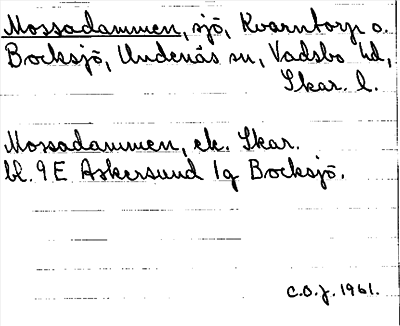 Mossadammen, sjö, Kvarntorp o.
Bocksjö, Undenäs sn, Vadsbo hd,
Skar. l.
Mossadammen, ek. Skar.
bl. 9E Askersund 1g Bocksjö.
C.O.J. 1961.